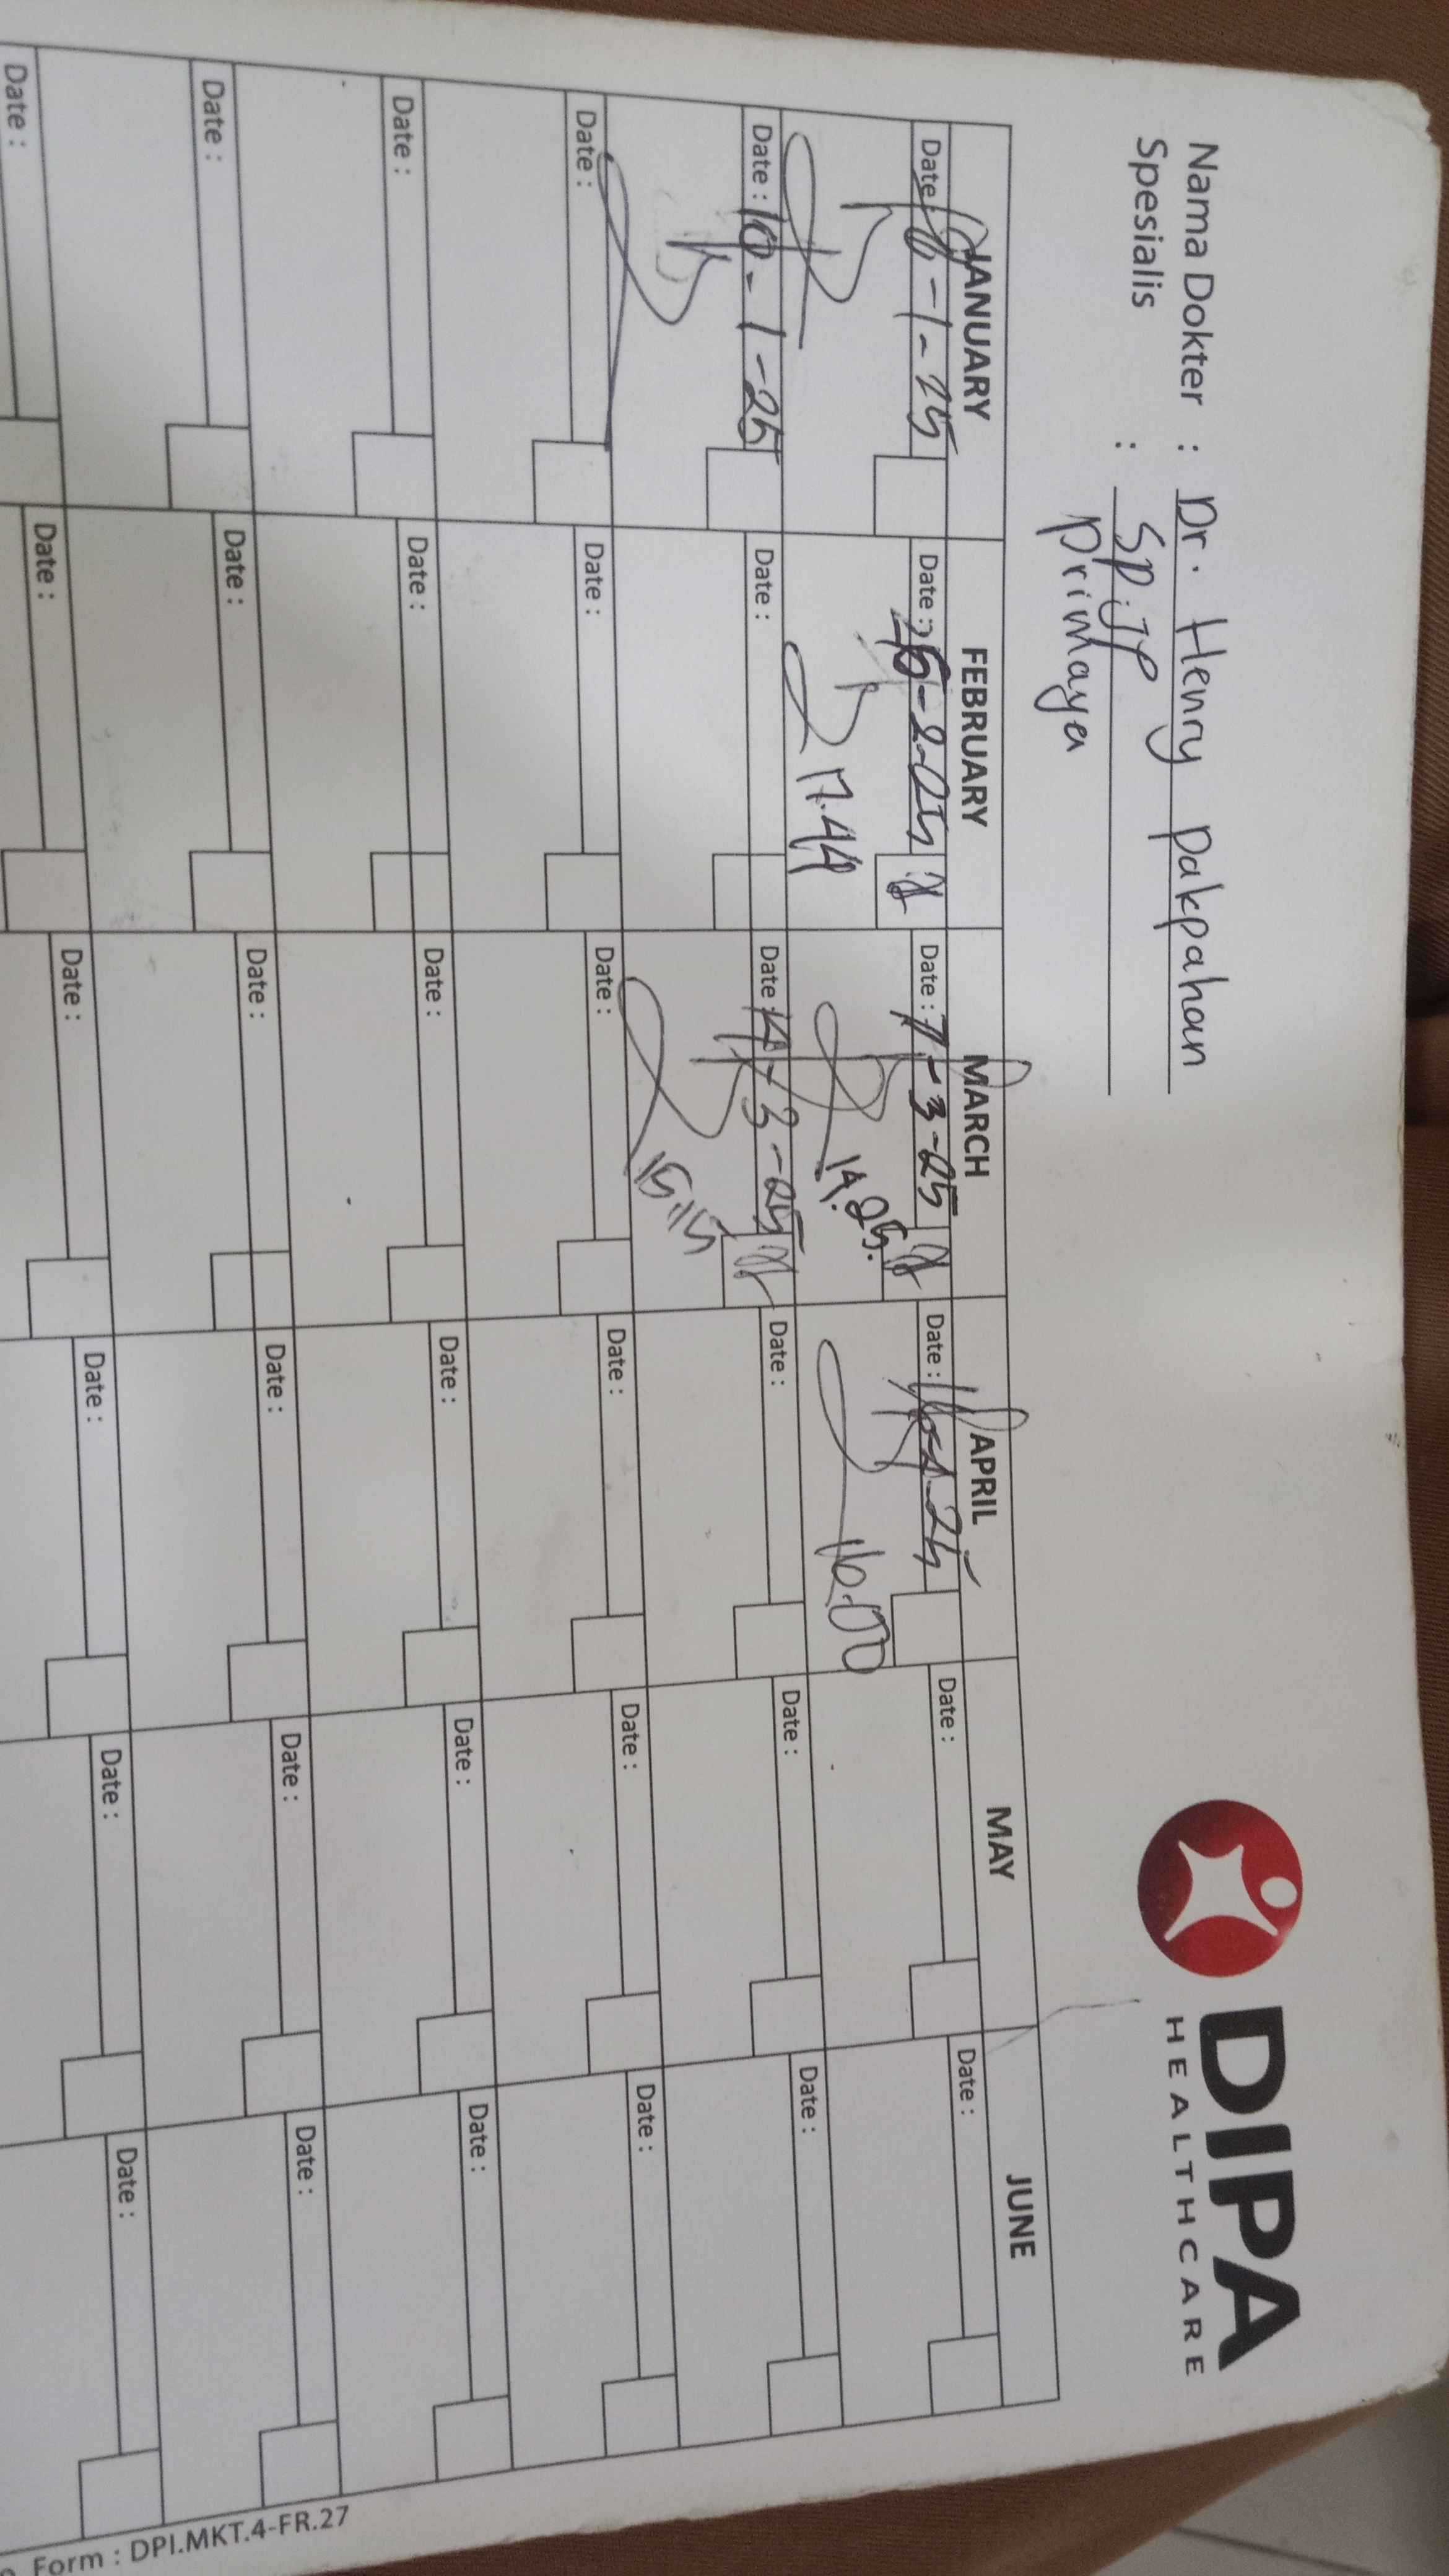 Nama Dokter : Dr. Henry pakpahan
Spesialis : SP.JP
primaya
DIPA
HEALTHCARE
JANUARY FEBRUARY MARCH APRIL MAY JUNE
Date: -1-25 Date: 26-2-25 Date: 7-3-25 Date: Date: Date:
17.44 14.25. 16.00
Date: 10-1-25 Date: Date: 14-3-25 Date: Date: Date:
15.15
Date: Date: Date: Date: Date: Date:
Date: Date: Date: Date: Date: Date:
Date: Date: Date: Date: Date: Date:
Date: Date: Date: Date: Date: Date:
Form : DPI.MKT.4-FR.27